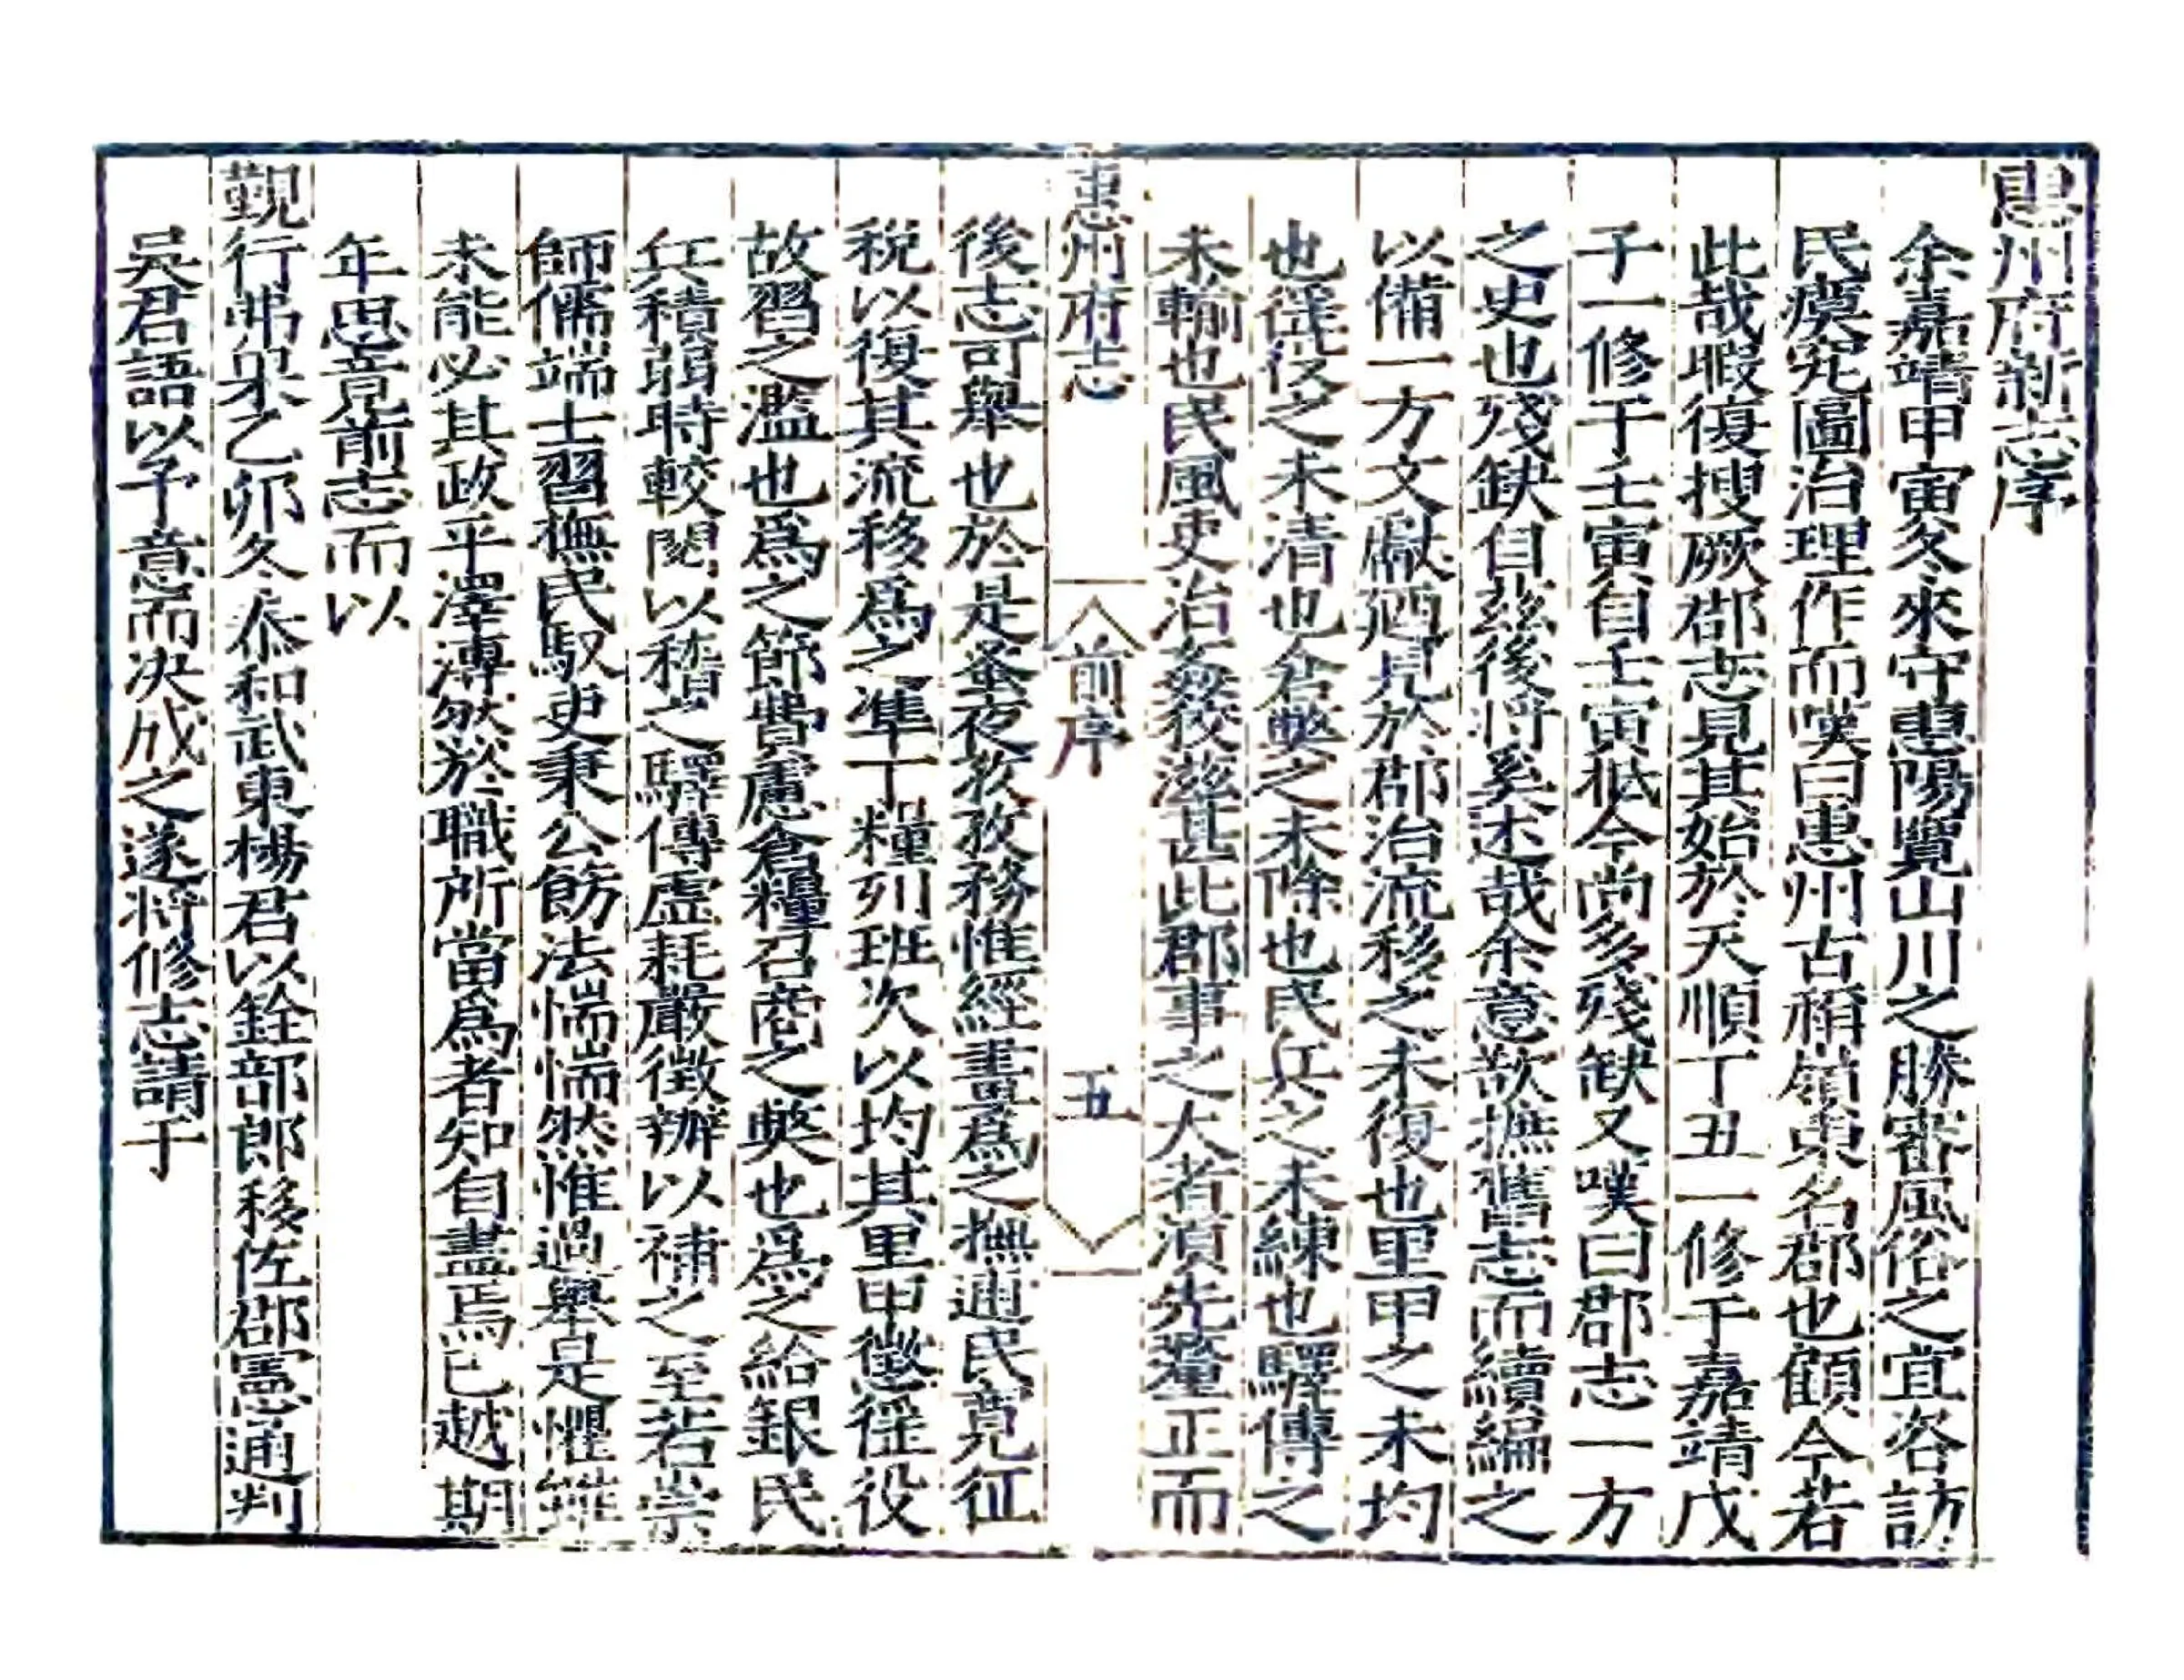 惠州府新志序
余嘉靖甲寅冬來守惠陽覽山川之勝審風俗之宜咨訪
民瘼究圖治理作而嘆曰惠州古稱嶺東名郡也顧今若
此哉暇復搜厥郡志見其始於天順丁丑一修于嘉靖戊
子一修于壬寅自壬寅抵今尚多殘缺又嘆曰郡志一方
之史也殘缺自茲後將奚述哉余意欲摭舊志而續編之
以備一方文獻廼見於郡治流移之未復也里甲之未均
也徭役之未清也倉弊之未除也民兵之未練也驛傳之
未輸也民風吏治姦狡滋甚此郡事之大者湏先釐正而
惠州府志
前序
五
後志可舉也於是蚤夜孜孜務惟經畫爲之撫逋民寛征
税以復其流移爲之凖丁糧列班次以均其里甲懲徭役
故習之濫也爲之節費慮倉糧召商之獘也爲之給銀民
兵積弱時較閱以稽之驛傳虛耗嚴徵辦以補之至若崇
師儒端士習撫民馭吏秉公飭法惴惴然惟過舉是懼雖
未能必其政平澤溥然於職所當爲者知自盡焉已越期
年思竟前志而以
覲行弗果乙卯冬泰和武東楊君以銓部郎移佐郡憲通判
吳君語以予意而决成之遂将修志請于